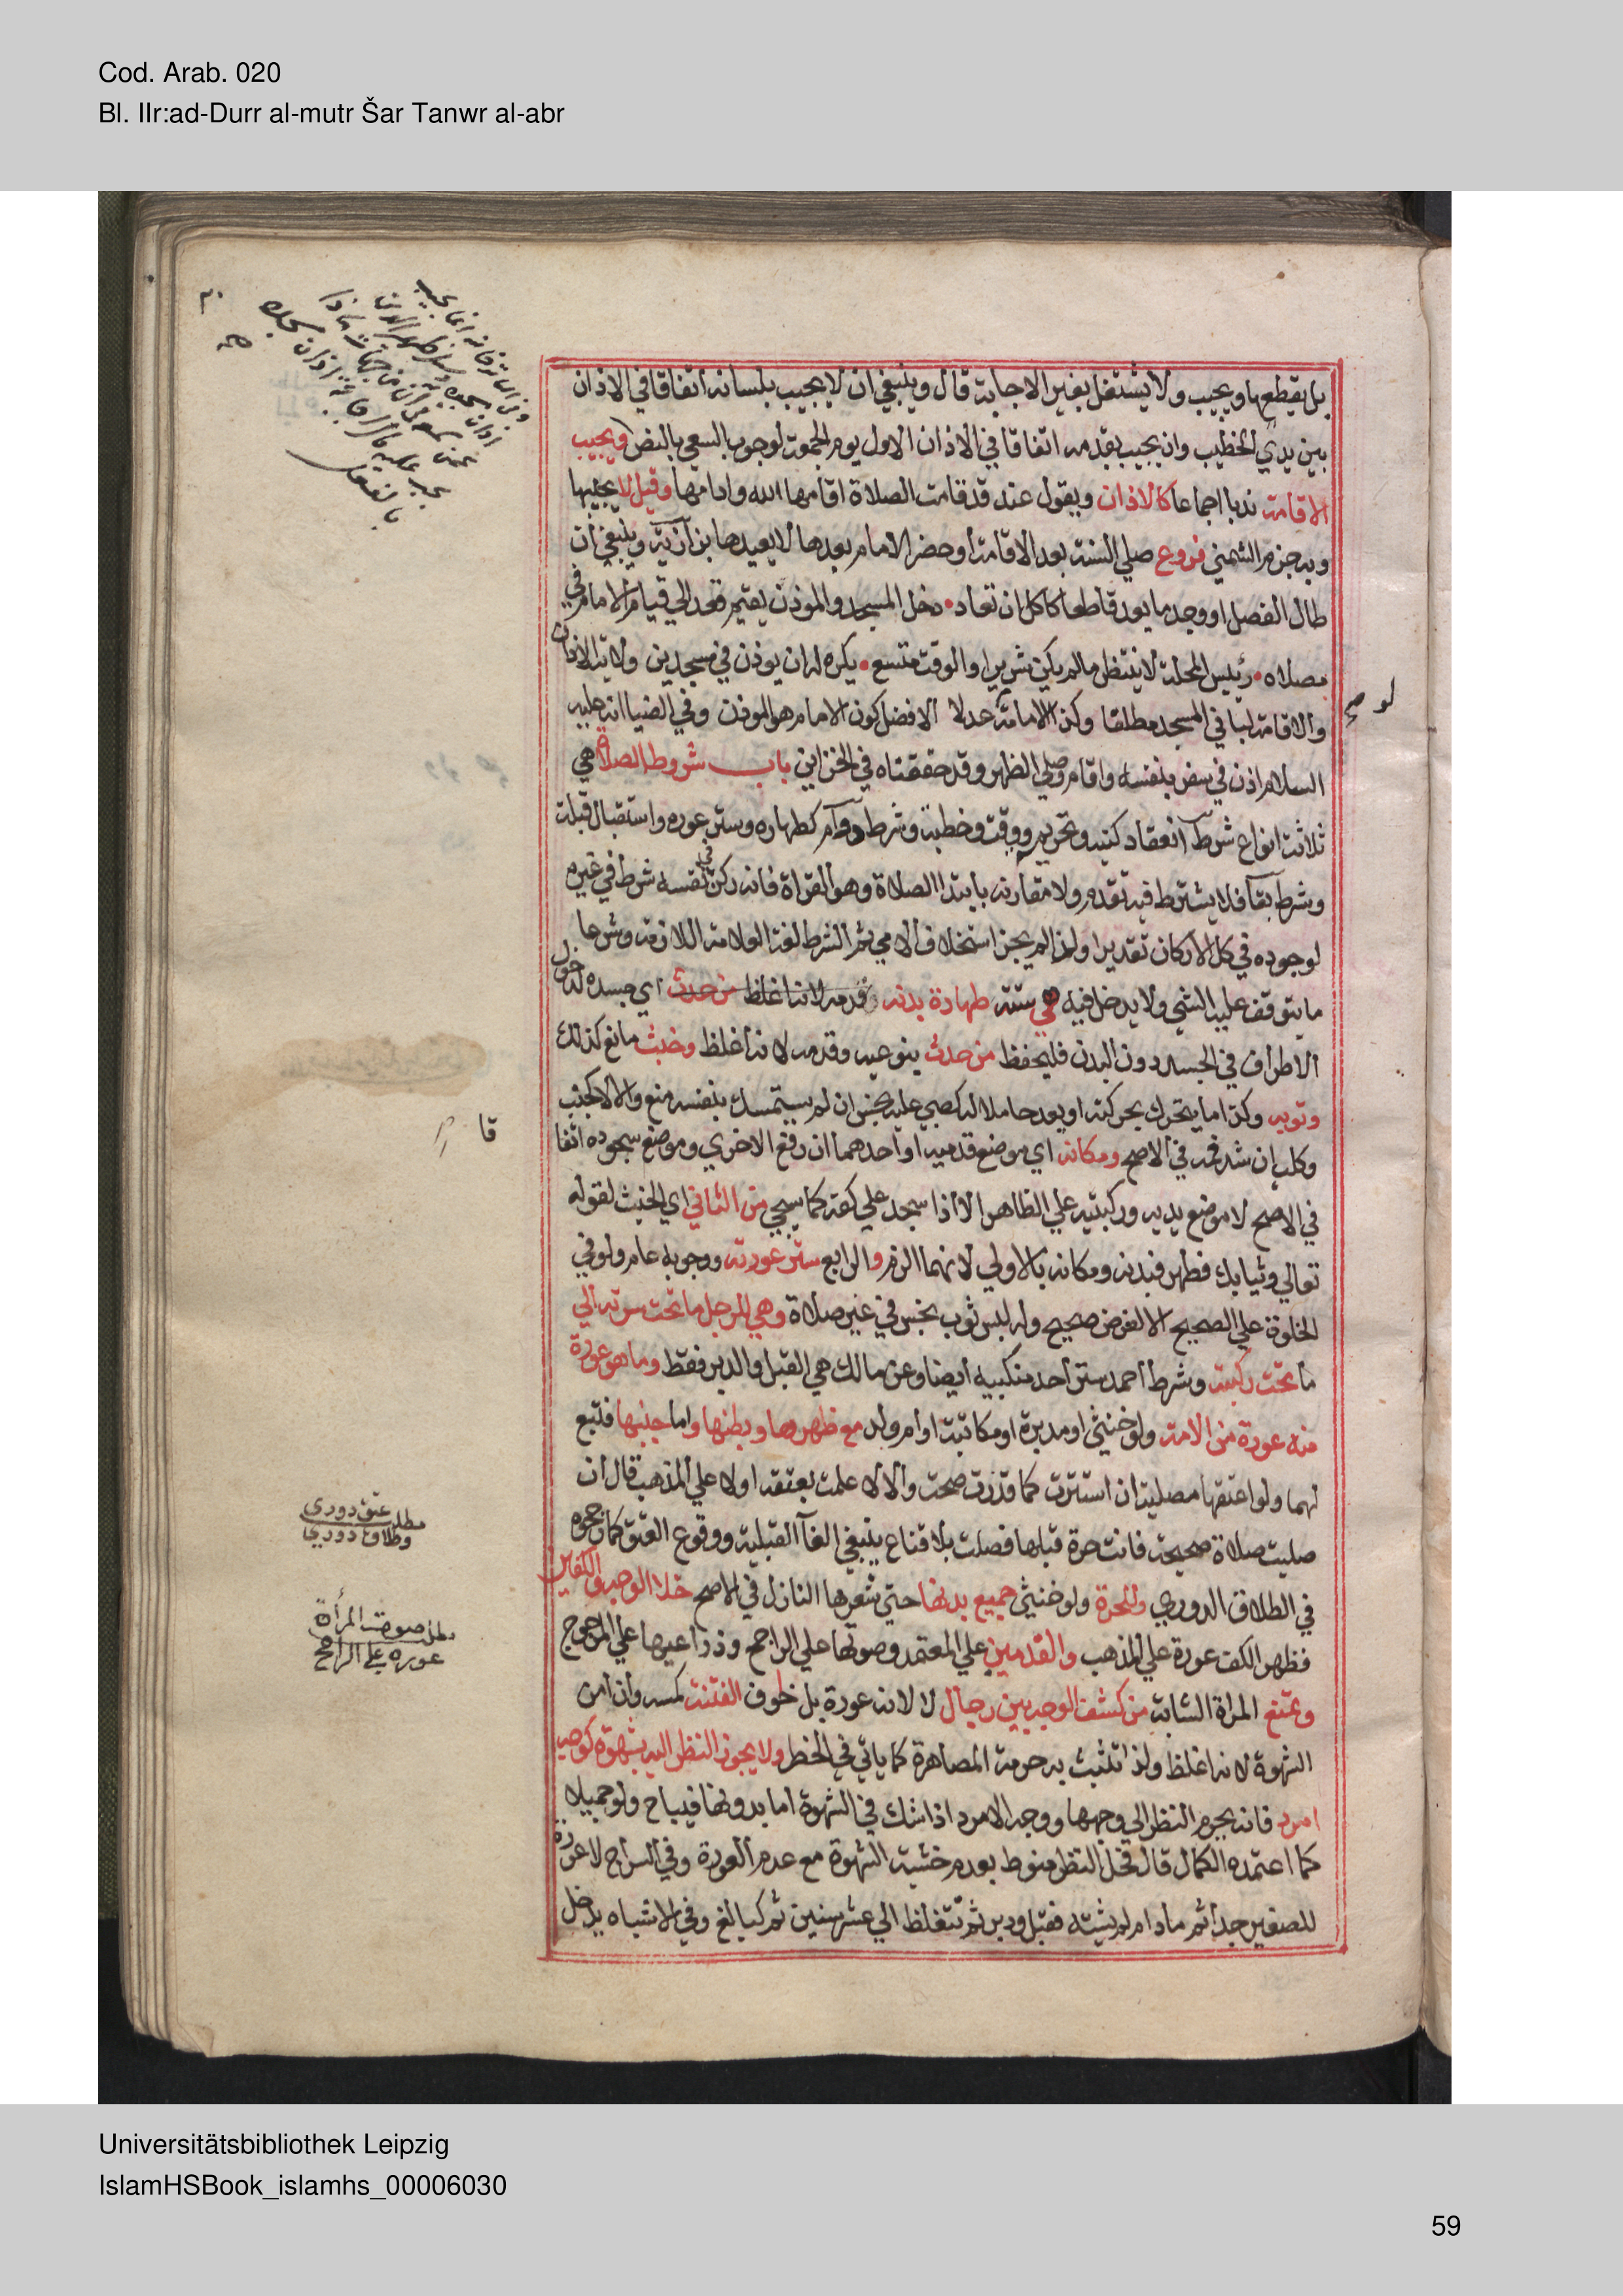 Cod. Arab. 020
Bl. IIr:ad-Durr al-mutr Šar Tanwr al-abr
بل يقطعها ويجيب ولا يشتغل بغير الاجابة قال وينبغي ان لا يجيب بلسانه اتفاقا في الاذان
بين يدي الخطيب وان يجيب بقدمه اتفاقا في الاذان الاول يوم الجمعة لوجوب السعي بالنص ويجيب
الاقامة ندبا اجماعا كالاذان ويقول عند قد قامت الصلاة اقامها الله وادامها وقيل لا يجيبها
وبه جزم الشمني فروع صلي السنة بعد الاقامة او حضر الامام بعدها لا يعيدها بزازية وينبغي ان
طال الفصل او وجد ما يعد قاطعا كاكل ان تعاد دخل المسجد والموذن يقيم قعد الي قيام الامام في
مصلاه رئيس المحلة لا ينتظر ما لم يكن شريرا والوقت متسع يكره له ان يوذن في مسجدين ولاية الاذان
والاقامة لباني المسجد مطلقا وكذا الامامة عدلا الافضل كون الامام هو الموذن وفي الضيا انه عليه
السلام اذن في سفر بنفسه واقام وصلي الظهر وقد حققناه في الخزاين باب شروط الصلاة هي
ثلاثة انواع شرط انعقاد كنية وتحريمة ووقت وخطبة وشرط دوام كطهاره وستر عوره واستقبال قبلة
وشرط بقا فلا يشترط فيه تقدم ولا مقارنة بابتدا الصلاة وهو القراة فانه ركن في نفسه شرط في غيره
لوجوده في كل الاركان تقديرا ولذا لم يجز استخلاف الامي ثم الشرط لغة العلامة اللازمة وشرعا
ما يتوقف عليه الشي ولا يدخل فيه هي ستة طهارة بدنه قدمه لانها اغلظ من حدث اي جسده لدخول
الاطراف في الجسد دون البدن فليحفظ من حدث بنوعيه وقدمه لانه اغلظ وخبث مانع كذلك
وثوبه وكذا ما يتحرك بحركته او يعد حاملا له كصبي عليه نجس ان لم يستمسك بنفسه منع والا لا كجنب
وكلب ان شد فمه في الاصح ومكانه اي موضع قدميه او احدهما ان رفع الاخري وموضع سجوده اتفاقا
في الاصح لا موضع يديه وركبتيه علي الظاهر الا اذا سجد علي كفه كما سيجي من الثاني اي الخبث لقوله
تعالي وثيابك فطهر فبدنه ومكانه بالاولي لانهما الزم والرابع ستر عورته ووجوبه عام ولو في
الخلوة علي الصحيح الا لغرض صحيح وله لبس ثوب نجس في غير صلاة وهي للرجل ما تحت سرته الي
ما تحت ركبته وشرط احمد ستر احد منكبيه ايضا وعن مالك هي القبل والدبر فقط وما هو عورة
منه عورة من الامة ولو خنثي او مدبرة او مكاتبة او ام ولد مع ظهرها وبطنها واما جنبها فتبع
لهما ولو اعتقها مصلية ان استترت كما قدرت صحت والا لا علمت بعتقه او لا علي المذهب قال ان
صليت صلاة صحيحة فانت حرة قبلها فصلت بلا قناع ينبغي الغا القبلية ووقوع العتق كما رجحوه
في الطلاق الدوري وللحرة ولو خنثي جميع بدنها حتي شعرها النازل في الاصح خلا الوجه والكفين
فظهر الكف عورة علي المذهب والقدمين علي المعتمد وصوتها علي الراجح وذراعيها علي المرجوح
وتمنع المراة الشابة من كشف الوجه بين رجال لا لانه عورة بل لخوف الفتنة كمسه وان امن
الشهوة لانه اغلظ ولذا تثبت به حرمة المصاهرة كما ياتي في الحظر ولا يجوز النظر اليه بشهوة كوجه
امرد فانه يحرم النظر الي وجهها ووجه الامرد اذا شك في الشهوة اما بدونها فيباح ولو جميلا
كما اعتمده الكمال قال فحل النظر منوط بعدم خشية الشهوة مع عدم العورة وفي السراج لا عورة
للصغير جدا ثم ما دام لم يشته فقبل ودبر ثم تتغلظ الي عشر سنين ثم كبالغ وفي الاشباه يدخل
لو صح
قا
مطلب عتق دوري
وطلاق دوري
مطلب صوت المرأة
عوره علي الراجح
Universitätsbibliothek Leipzig
IslamHSBook_islamhs_00006030
59